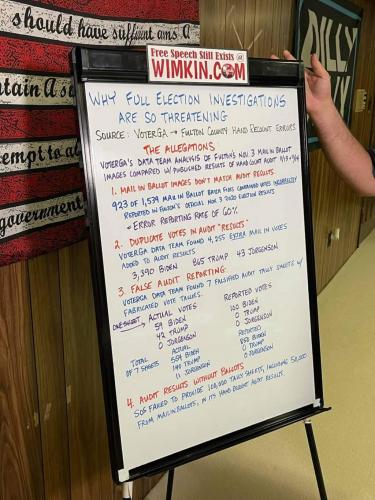 should have sufficient ams A
ntain A s
empt to a
government,
DILLY
Free Speech Still Exists @
WIMKIN.COM
WHY FULL ELECTION INVESTIGATIONS
ARE SO THREATENING
SOURCE: VOTERGA → FULTON COUNTY HAND RECOUNT ERRORS
THE ALLEGATIONS
VOTERGA'S DATA TEAM ANALYSIS OF FULTON'S NOV. 3 MAIL IN BALLOT
IMAGES COMPARED W/ PUBLISHED RESULTS OF HAND COUNT AUDIT
1. MAIL IN BALLOT IMAGES DON'T MATCH AUDIT RESULTS.
923 OF 1,539 MAIL IN BALLOT BATCH FILES CONTAINED VOTES INCORRECTLY
REPORTED IN FULTON'S OFFICIAL NOV. 3 2020 ELECTION RESULTS
= ERROR REPORTING RATE OF 60%
2. DUPLICATE VOTES IN AUDIT "RESULTS"
VOTERGA DATA TEAM FOUND 4,255 EXTRA MAIL IN VOTES
ADDED TO AUDIT RESULTS
3,390 BIDEN 865 TRUMP 43 JORGENSON
3. FALSE AUDIT REPORTING
VOTERGA DATA TEAM FOUND 7 FALSIFIED AUDIT TALLY SHEETS W/
FABRICATED VOTE TALLIES.
ACTUAL VOTES REPORTED VOTES
ONE SHEET 59 BIDEN 100 BIDEN
42 TRUMP 0 TRUMP
0 JORGENSON 0 JORGENSON
ACTUAL REPORTED
TOTAL 554 BIDEN 850 BIDEN
OF 7 SHEETS 140 TRUMP 0 TRUMP
11 JORGENSON 0 JORGENSON
4. AUDIT RESULTS WITHOUT BALLOTS
SOS FAILED TO PROVIDE 100,000 TALLY SHEETS, INCLUDING 50,000
FROM MAIL IN BALLOTS, IN ITS HAND COUNT AUDIT RESULTS.